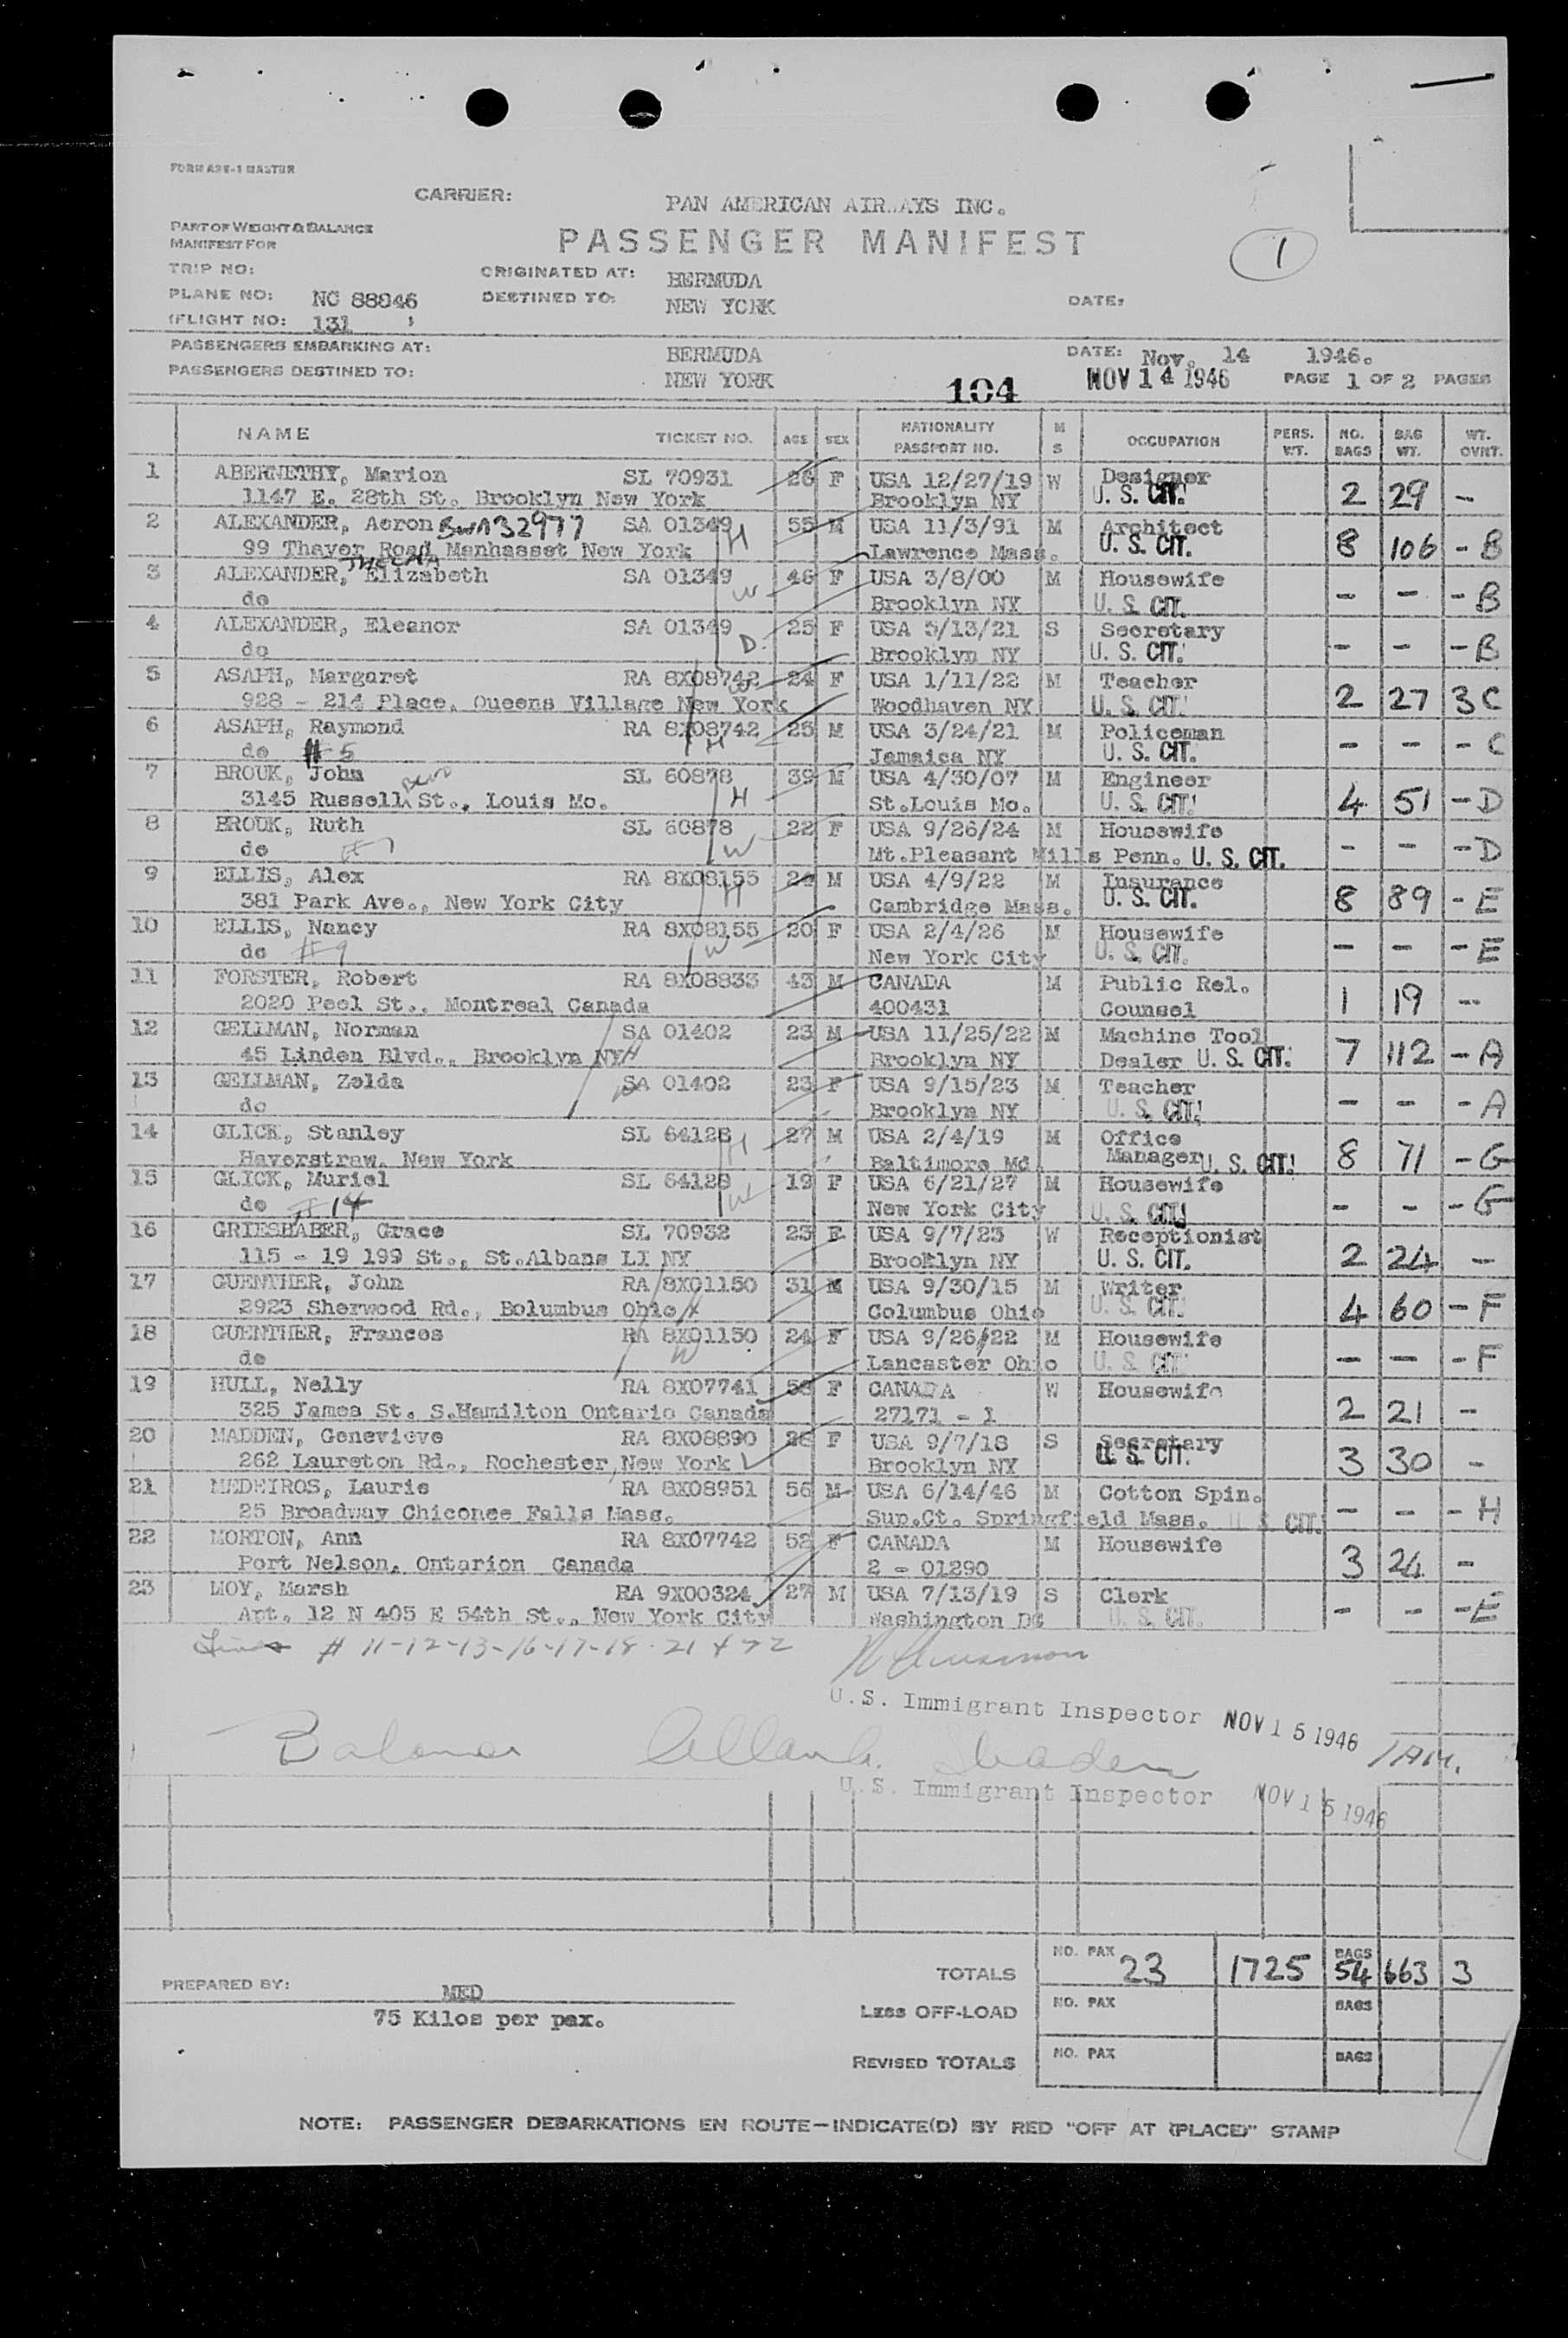 FORM A26-1 MASTER
CARRIER: PAN AMERICAN AIRWAYS INC.
PART OF WEIGHT & BALANCE
MANIFEST FOR
PASSENGER MANIFEST
1
TRIP NO:
ORIGINATED AT: BERMUDA
PLANE NO: NC 88846
DESTINED TO: NEW YORK
DATE:
(FLIGHT NO: 131 )
PASSENGERS EMBARKING AT: BERMUDA
DATE: Nov. 14 1946.
PASSENGERS DESTINED TO: NEW YORK
104
NOV 14 1946
PAGE 1 OF 2 PAGES
NAME TICKET NO. AGE SEX NATIONALITY PASSPORT NO. M S OCCUPATION PERS. WT. NO. BAGS BAG WT. WT. OVHT.
1 ABERNETHY, Marion SL 70931 26 F USA 12/27/19 W Designer 2 29 -
1147 E. 28th St. Brooklyn New York Brooklyn NY U. S. CIT.
2 ALEXANDER, Aeron BWA32977 SA 01349 H 55 M USA 11/3/91 M Architect 8 106 - B
99 Thayer Road Manhasset New York Lawrence Mass. U. S. CIT.
3 ALEXANDER, Elizabeth SA 01349 W 46 F USA 3/8/00 M Housewife - - - B
do Brooklyn NY U. S. CIT.
4 ALEXANDER, Eleanor SA 01349 D. 25 F USA 5/13/21 S Secretary - - - B
do Brooklyn NY U. S. CIT.
5 ASAPH, Margaret RA 8X08742 W 24 F USA 1/11/22 M Teacher 2 27 3C
928 - 214 Place, Queens Village New York Woodhaven NY U. S. CIT.
6 ASAPH, Raymond RA 8X08742 H 25 M USA 3/24/21 M Policeman - - - C
do # 5 Jamaica NY U. S. CIT.
7 BROUK, John SL 60878 H 39 M USA 4/30/07 M Engineer 4 51 - D
3145 Russell Blvd St., Louis Mo. St.Louis Mo. U. S. CIT.
8 BROUK, Ruth SL 60878 W 22 F USA 9/26/24 M Housewife - - - D
do # 7 Mt.Pleasant Mills Penn. U. S. CIT.
9 ELLIS, Alex RA 8X08155 H 24 M USA 4/9/22 M Insurance 8 89 - E
381 Park Ave., New York City Cambridge Mass. U. S. CIT.
10 ELLIS, Nancy RA 8X08155 W 20 F USA 2/4/26 M Housewife - - - E
do # 9 New York City U. S. CIT.
11 FORSTER, Robert RA 8X08833 43 M CANADA M Public Rel. 1 19 -
2020 Peel St., Montreal Canada 400431 Counsel
12 GELLMAN, Norman SA 01402 23 M USA 11/25/22 M Machine Tool 7 112 - A
45 Linden Blvd., Brooklyn NY H Brooklyn NY Dealer U. S. CIT.
13 GELLMAN, Zelda W SA 01402 23 F USA 9/15/23 M Teacher - - - A
do Brooklyn NY U. S. CIT.
14 GLICK, Stanley SL 64128 H 27 M USA 2/4/19 M Office 8 71 - G
Haverstraw, New York Baltimore Md. Manager U. S. CIT.
15 GLICK, Muriel SL 64128 W 19 F USA 6/21/27 M Housewife - - - G
do # 14 New York City U. S. CIT.
16 GRIESHABER, Grace SL 70932 23 F USA 9/7/23 W Receptionist 2 24 -
115 - 19 199 St., St.Albans LI NY Brooklyn NY U. S. CIT.
17 GUENTHER, John RA 8X01150 31 M USA 9/30/15 M Writer 4 60 - F
2923 Sherwood Rd., Bolumbus Ohio H Columbus Ohio U. S. CIT.
18 GUENTHER, Frances RA 8X01150 W 24 F USA 9/26/22 M Housewife - - - F
do Lancaster Ohio U. S. CIT.
19 HULL, Nelly RA 8X07741 58 F CANADA W Housewife 2 21 -
325 James St. S.Hamilton Ontario Canada 27171 - 1
20 MADDEN, Genevieve RA 8X08890 28 F USA 9/7/18 S Secretary 3 30 -
262 Laureton Rd., Rochester, New York Brooklyn NY U. S. CIT.
21 MEDEIROS, Laurie RA 8X08951 56 M USA 6/14/46 M Cotton Spin. - - - H
25 Broadway Chiconee Falls Mass. Sup.Ct. Springfield Mass. U. S. CIT.
22 MORTON, Ann RA 8X07742 52 F CANADA M Housewife 3 24 -
Port Nelson, Ontarion Canada 2 - 01290
23 MOY, Marsh RA 9X00324 27 M USA 7/13/19 S Clerk - - - E
Apt. 12 N 405 E 54th St., New York City Washington DC U. S. CIT.
Lines # 11-12-13-16-17-18-21 + 22
U.S. Immigrant Inspector NOV 15 1946
Balance
1 AM.
U.S. Immigrant Inspector NOV 15 1946
TOTALS NO. PAX 23 1725 BAGS 54 663 3
PREPARED BY: MED
75 Kilos per pax.
Less OFF-LOAD NO. PAX BAGS
REVISED TOTALS NO. PAX BAGS
NOTE: PASSENGER DEBARKATIONS EN ROUTE—INDICATE(D) BY RED "OFF AT (PLACE)" STAMP